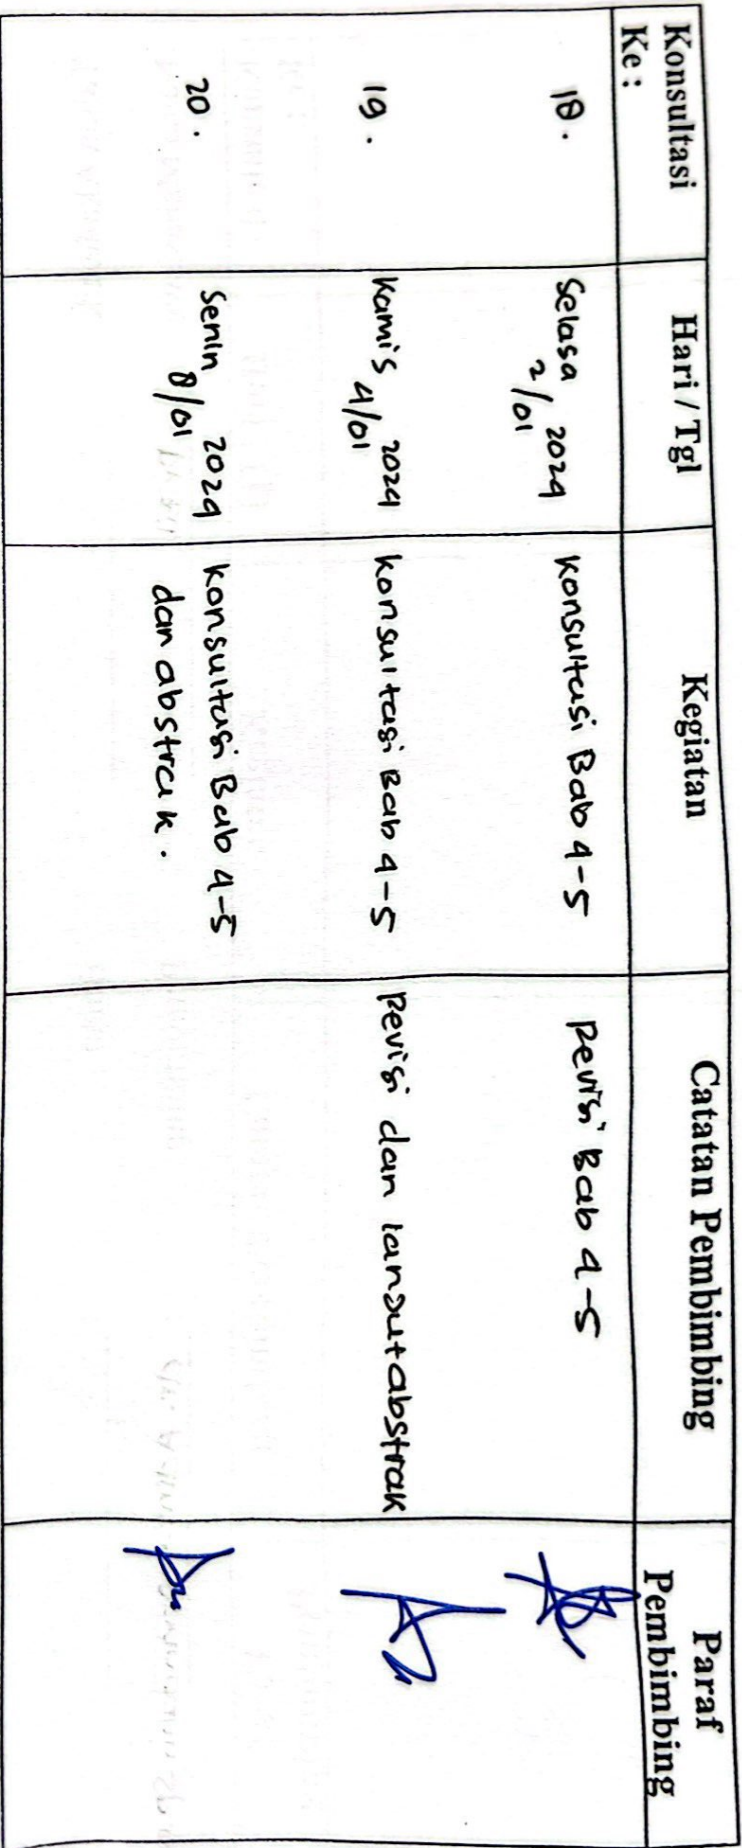 Konsultasi Ke : Hari / Tgl Kegiatan Catatan Pembimbing Paraf Pembimbing
18. Selasa 2/01 2024 Konsultasi Bab 4-5 Revisi Bab 4-5
19. Kamis 4/01 2024 Konsultasi Bab 4-5 Revisi dan lanjut abstrak
20. Senin 8/01 2024 Konsultasi Bab 4-5
dan abstrak.